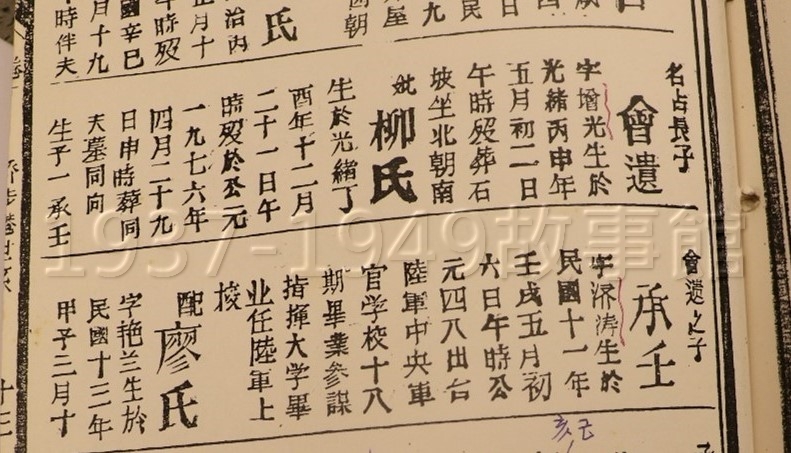 名占長子
會遺
字增光生於
光緒丙申年
五月初二日
午時歿葬石
坡坐北朝南
妣
柳氏
生於光緒丁
酉年十二月
二十一日午
時歿於公元
一九七六年
四月二十九
日申時葬同
夫墓同向
生子一承壬
會遺之子
承壬
字济涛生於
民國十一年
壬戌五月初
六日午時公
元四八出台
陸軍中央軍
官学校十八
期畢業参謀
指揮大学畢
业任陸軍上
校
配
廖氏
字艳兰生於
民國十三年
甲子二月十
氏
治丙
正月十
年時歿
國辛巳
月十九
時伴夫
十三
亥乙
1937-1949故事館